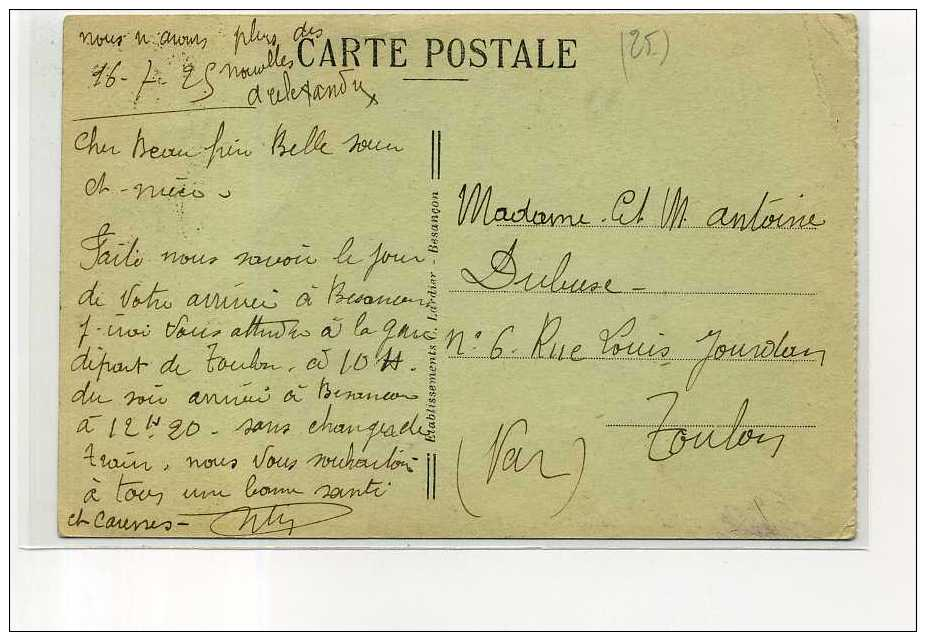 nous n'avons plus des
nouvelles
d'alexandre
16-7-25
CARTE POSTALE
(25)
Cher Beau père Belle soeur
et - nièce
Faite nous savoir le jour
de votre arrivée à Besancon
j-irai vous attendre à la gare
départ de Toulon, à 10 H.
du soir arrivée à Besancon
à 12 H 20 - sans changer de
train, nous vous souhaitons
à tous une bonne santé
et Caresses -
Etablissements C. Lardier - Besançon
Madame. Et M. antoine
Dubuse -
N° 6. Rue Louis Jourdan
Toulon
(Var)